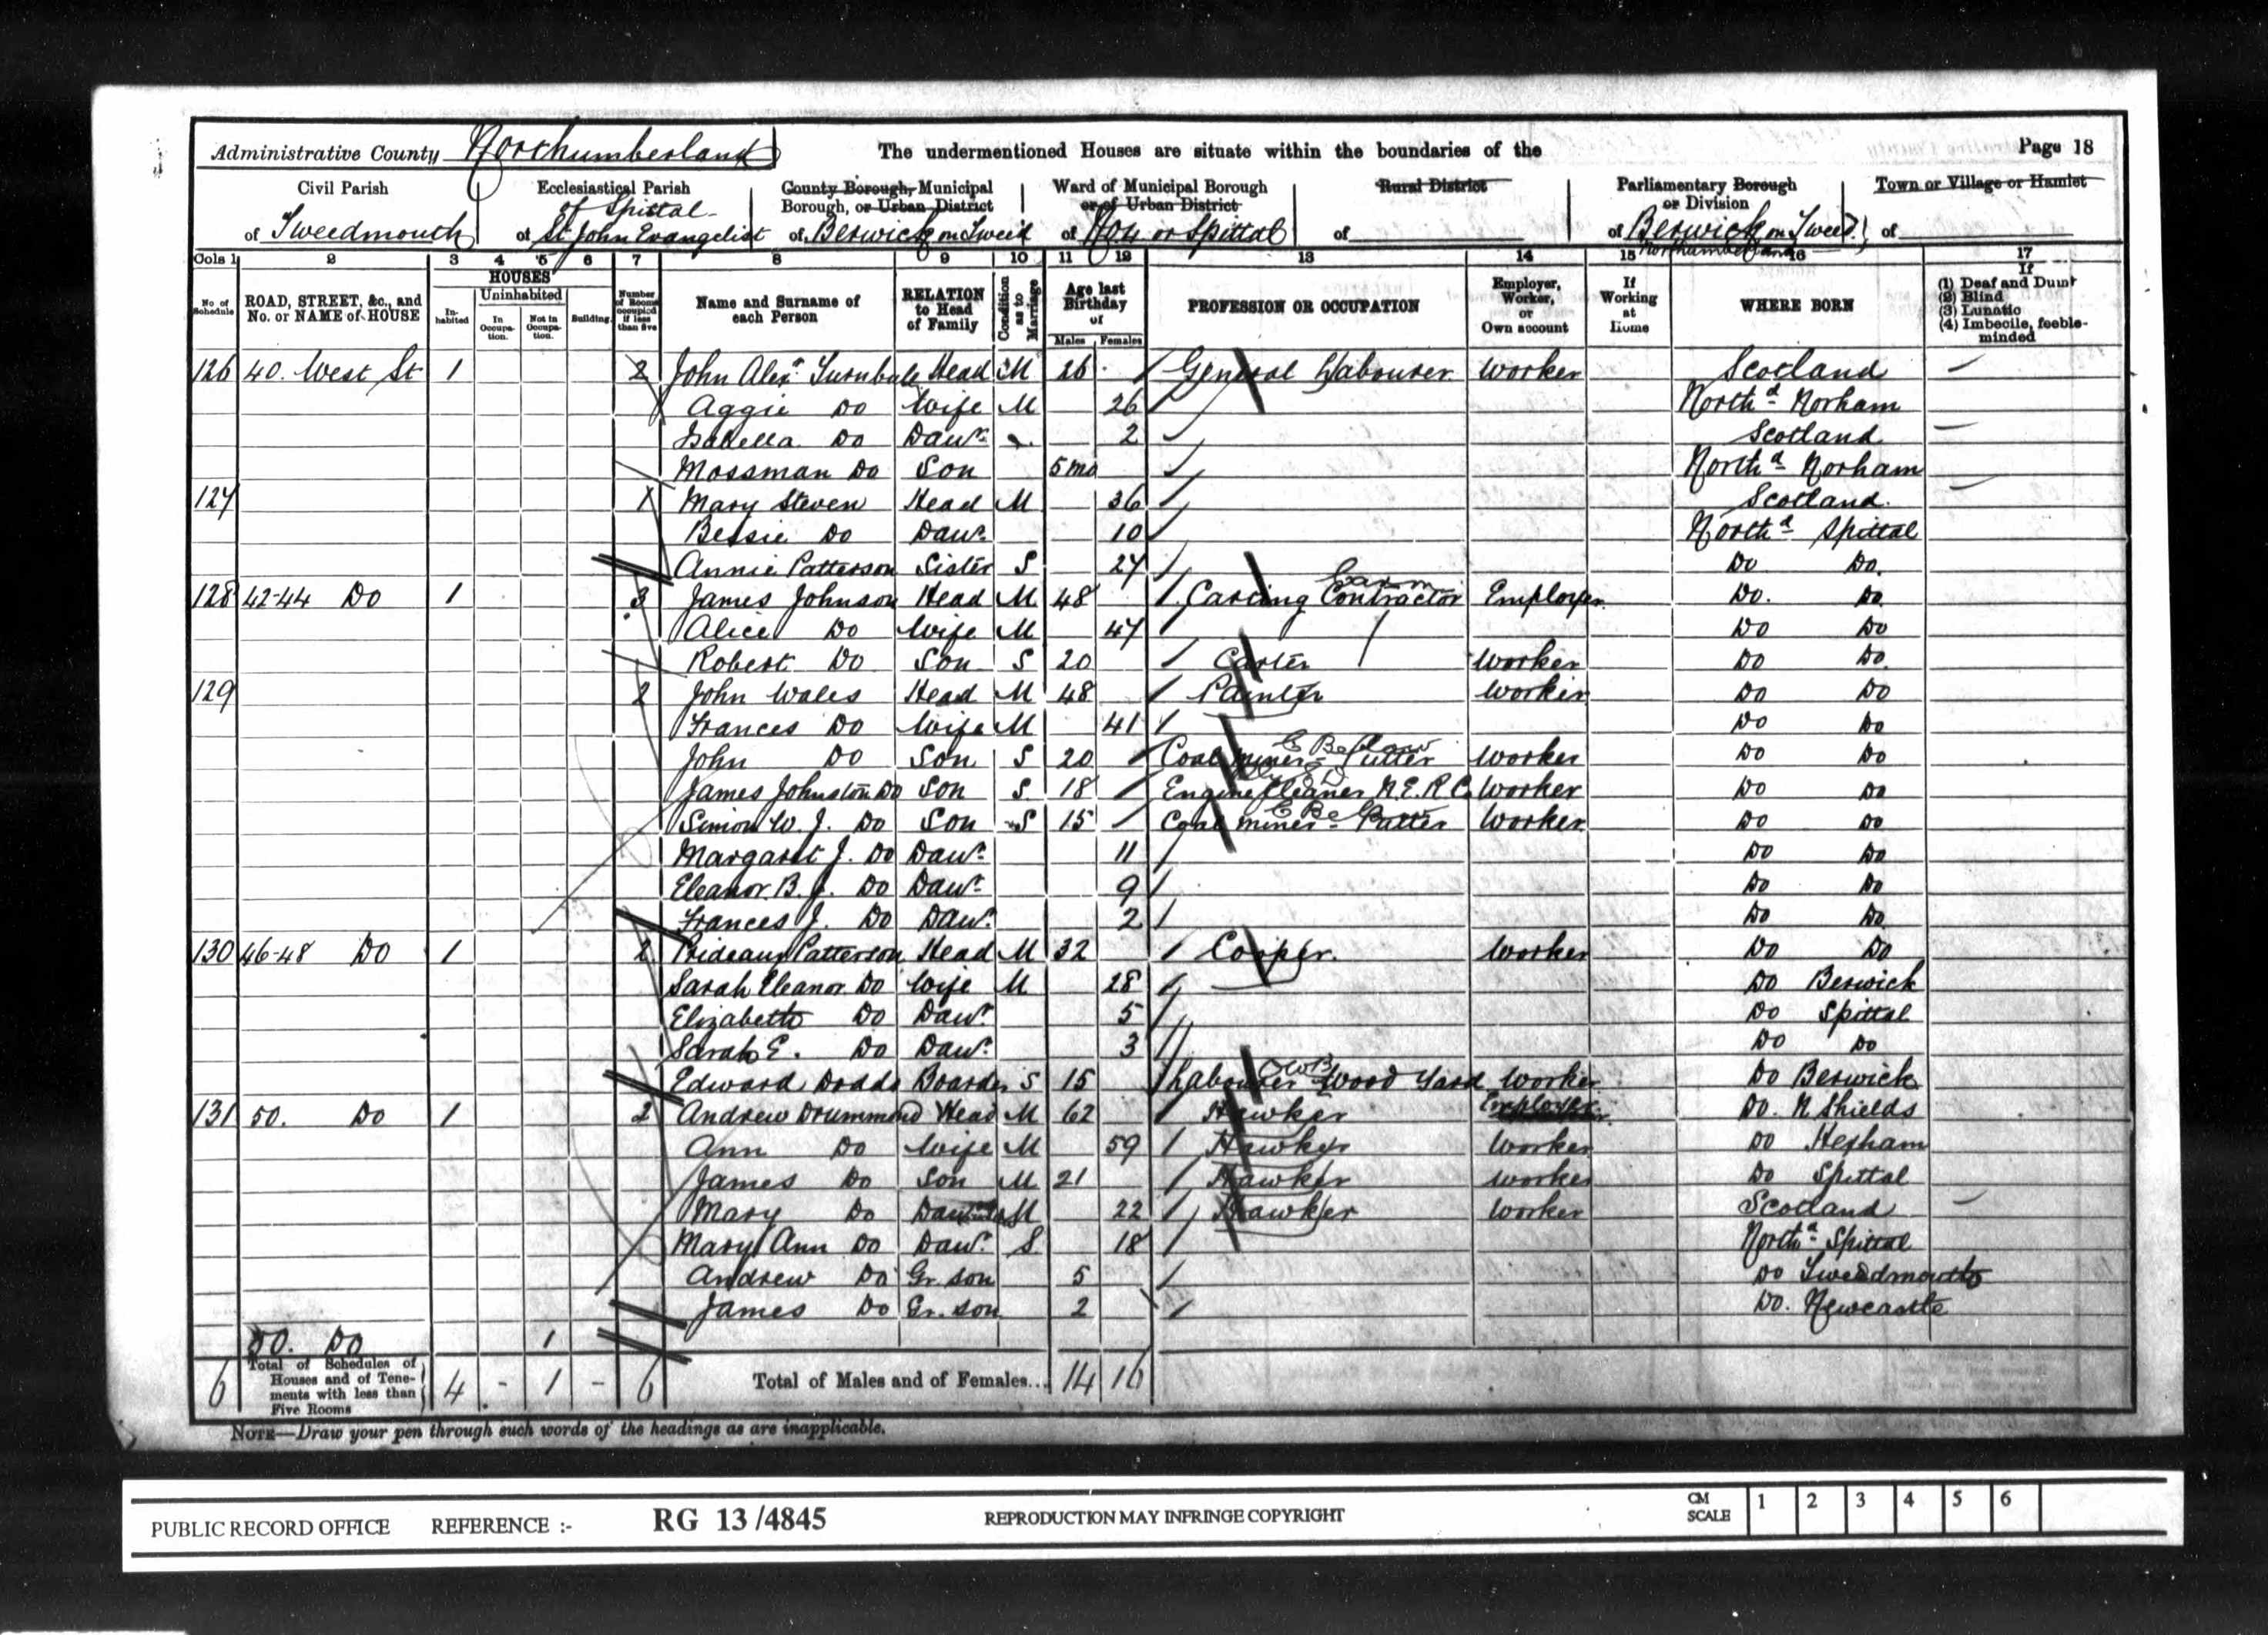 Administrative County Northumberland The undermentioned Houses are situate within the boundaries of the Page 18
Civil Parish of Tweedmouth
Ecclesiastical Parish of Spittal of St John Evangelist
County Borough, Municipal Borough, or Urban District of Berwick on Tweed
Ward of Municipal Borough or of Urban District of or Spittal
Rural District of
Parliamentary Borough or Division of Berwick on Tweed Northumberland
Town or Village or Hamlet of
Cols 1 2 3 4 5 6 7 8 9 10 11 12 13 14 15 16 17
No. of Schedule
ROAD, STREET, &c., and No. or NAME of HOUSE
HOUSES
Inhabited
Uninhabited
In Occupation.
Not in Occupation.
Building
Number of Rooms occupied if less than five
Name and Surname of each Person
RELATION to Head of Family
Condition as to Marriage
Age last Birthday of
Males Females
PROFESSION OR OCCUPATION
Employer, Worker, or Own account
If Working at Home
WHERE BORN
If (1) Deaf and Dumb (2) Blind (3) Lunatic (4) Imbecile, feeble-minded
126 40. West St 1 2 John Alexr Turnbull Head M 26 General Labourer Worker Scotland
Aggie Do Wife M 26 Northd Norham
Isabella Do Dawr 2 Scotland
Mossman Do Son 5 mo Northd Norham
127 1 Mary Steven Head M 36 Scotland
Bessie Do Dawr 10 Northd Spittal
Annie Patterson Sister S 27 Do Do.
128 42-44 Do 1 3 James Johnson Head M 48 Carting Contractor Employer Do. Do
Alice Do Wife M 47 Do Do
Robert Do Son S 20 Carter Worker Do Do.
129 2 John Wales Head M 48 Painter Worker Do Do
Frances Do Wife M 41 Do Do
John Do Son S 20 Coal miner - Putter Worker Do Do
James Johnston Do Son S 18 Engine Cleaner N.E.R.C. Worker Do Do
Simion W. J. Do Son S 15 Coal miner - Putter Worker Do Do
Margaret J. Do Dawr 11 Do Do
Eleanor B. J. Do Dawr 9 Do Do
Frances J. Do Dawr 2 Do Do
130 46-48 Do 1 2 Prideaux Patterson Head M 32 Cooper. Worker Do Do
Sarah Eleanor Do Wife M 28 Do Berwick
Elizabeth Do Dawr 5 Do Spittal
Sarah E. Do Dawr 3 Do Do
Edward Dodds Boarder S 15 Labourer Wood Yard Worker Do Berwick
131 50. Do 1 2 Andrew Drummond Head M 62 Hawker Employer Do. N Shields
Ann Do Wife M 59 Hawker Worker Do Hexham
James Do Son M 21 Hawker Worker Do Spittal
Mary Do Daw M 22 Hawker Worker Scotland
Mary Ann Do Dawr S 18 Northd Spittal
Andrew Do Gr. son 5 Do Tweedmouth
James Do Gr. son 2 Do. Newcastle
50. Do 1
6 Total of Schedules of Houses and of Tenements with less than Five Rooms 4 - 1 - 6 Total of Males and of Females... 14 16
NOTE—Draw your pen through such words of the headings as are inapplicable.
PUBLIC RECORD OFFICE REFERENCE :- RG 13/4845 REPRODUCTION MAY INFRINGE COPYRIGHT CM SCALE 1 2 3 4 5 6